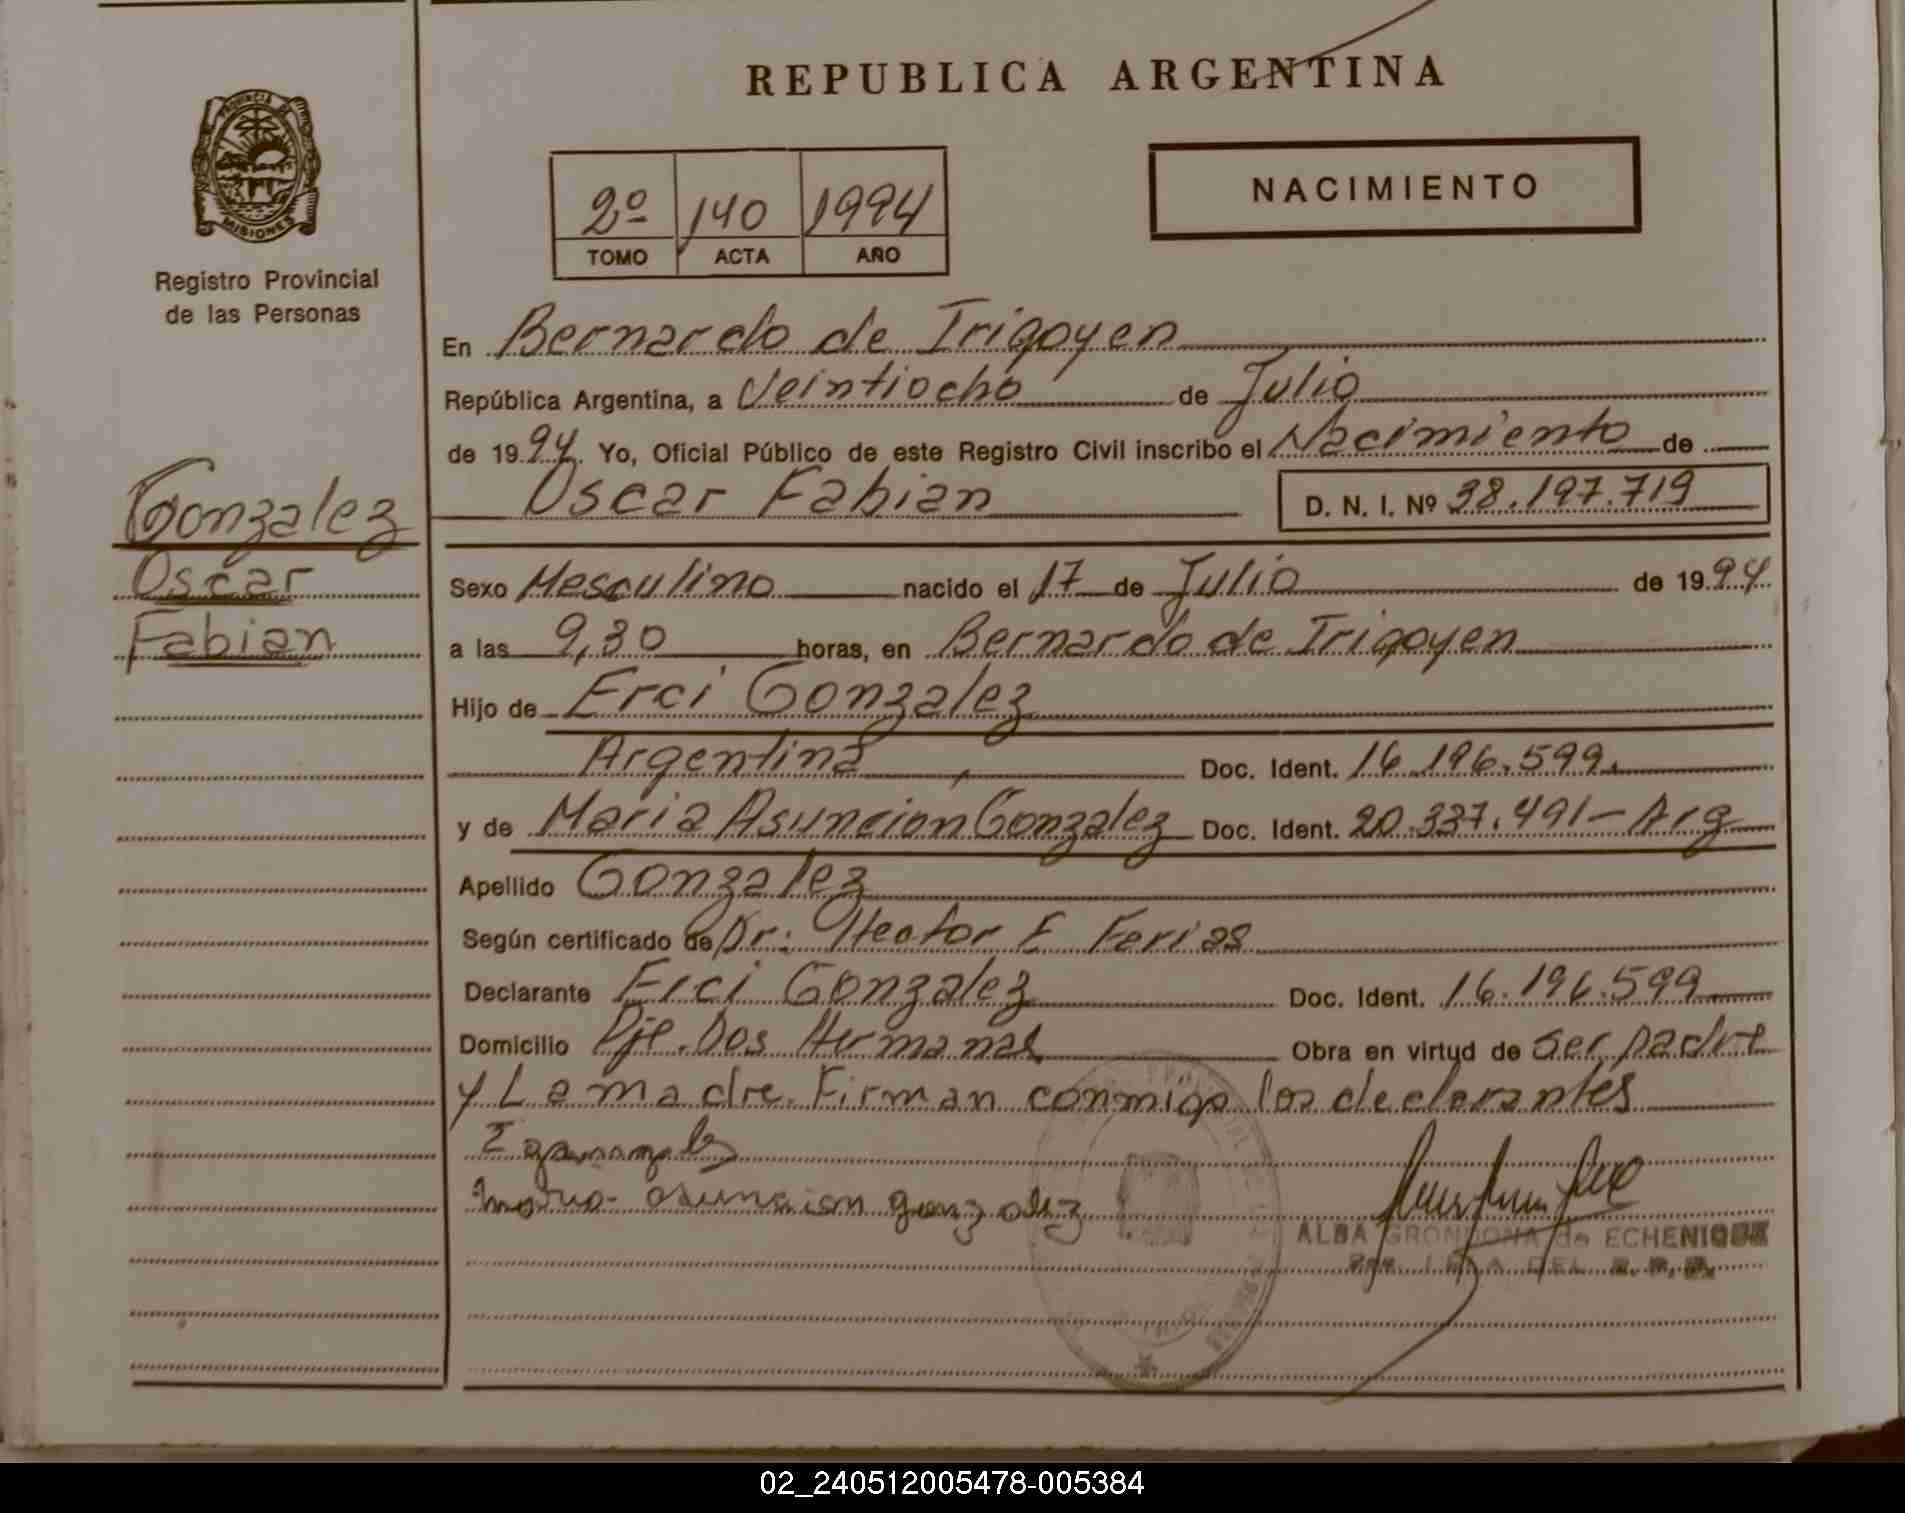 REPUBLICA ARGENTINA
PROVINCIA DE
MISIONES
Registro Provincial
de las Personas
2º 140 1994
TOMO ACTA AÑO
NACIMIENTO
En Bernardo de Irigoyen
República Argentina, a Veintiocho de Julio
de 1994. Yo, Oficial Público de este Registro Civil inscribo el Nacimiento de
Oscar Fabian D. N. I. Nº 38.197.719
Gonzalez
Oscar
Fabian
Sexo Mesculino nacido el 17 de Julio de 1994
a las 9,30 horas, en Bernardo de Irigoyen
Hijo de Erci Gonzalez
Argentina Doc. Ident. 16.196.599.
y de Maria Asuncion Gonzalez Doc. Ident. 20.337.491- Arg
Apellido Gonzalez
Según certificado de Dr: Hector E Ferias
Declarante Erci Gonzalez Doc. Ident. 16.196.599
Domicilio Pje. Dos Hermanas Obra en virtud de ser padre
y La madre. Firman conmigo los declarantes
maria asuncion gonzalez
ALBA GRONDONA de ECHENIQUE
DEL R.P.P.
02_240512005478-005384